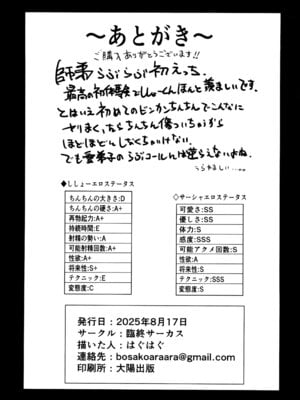 ～あとがき～
ご購入ありがとうございます!!
師弟らぶらぶ初えっち。
最高の初体験でししょーくんほんと羨ましいです。
とはいえ初めてのビンカンちんちんでこんなに
ヤりまくったらちんちん傷ついちゃうから
ほどほどにしなくちゃいけない。
でも愛弟子のらぶコールには逆らえないよね。
うらやましい……
◆ししょーエロステータス
ちんちんの大きさ:D
ちんちんの硬さ:A+
再勃起力:A+
持続時間:E
射精の勢い:A
可能射精回数:A+
性欲:A+
将来性:S+
テクニック:E
変態度:C
♡サーシャエロステータス
可愛さ:SS
優しさ:SS
体力:S
感度:SSS
可能アクメ回数:S
性欲:A
将来性:S
テクニック:SSS
変態度:S
発行日：2025年8月17日
サークル：臨終サーカス
描いた人：はぐはぐ
連絡先：bosakoaraara@gmail.com
印刷所：大陽出版